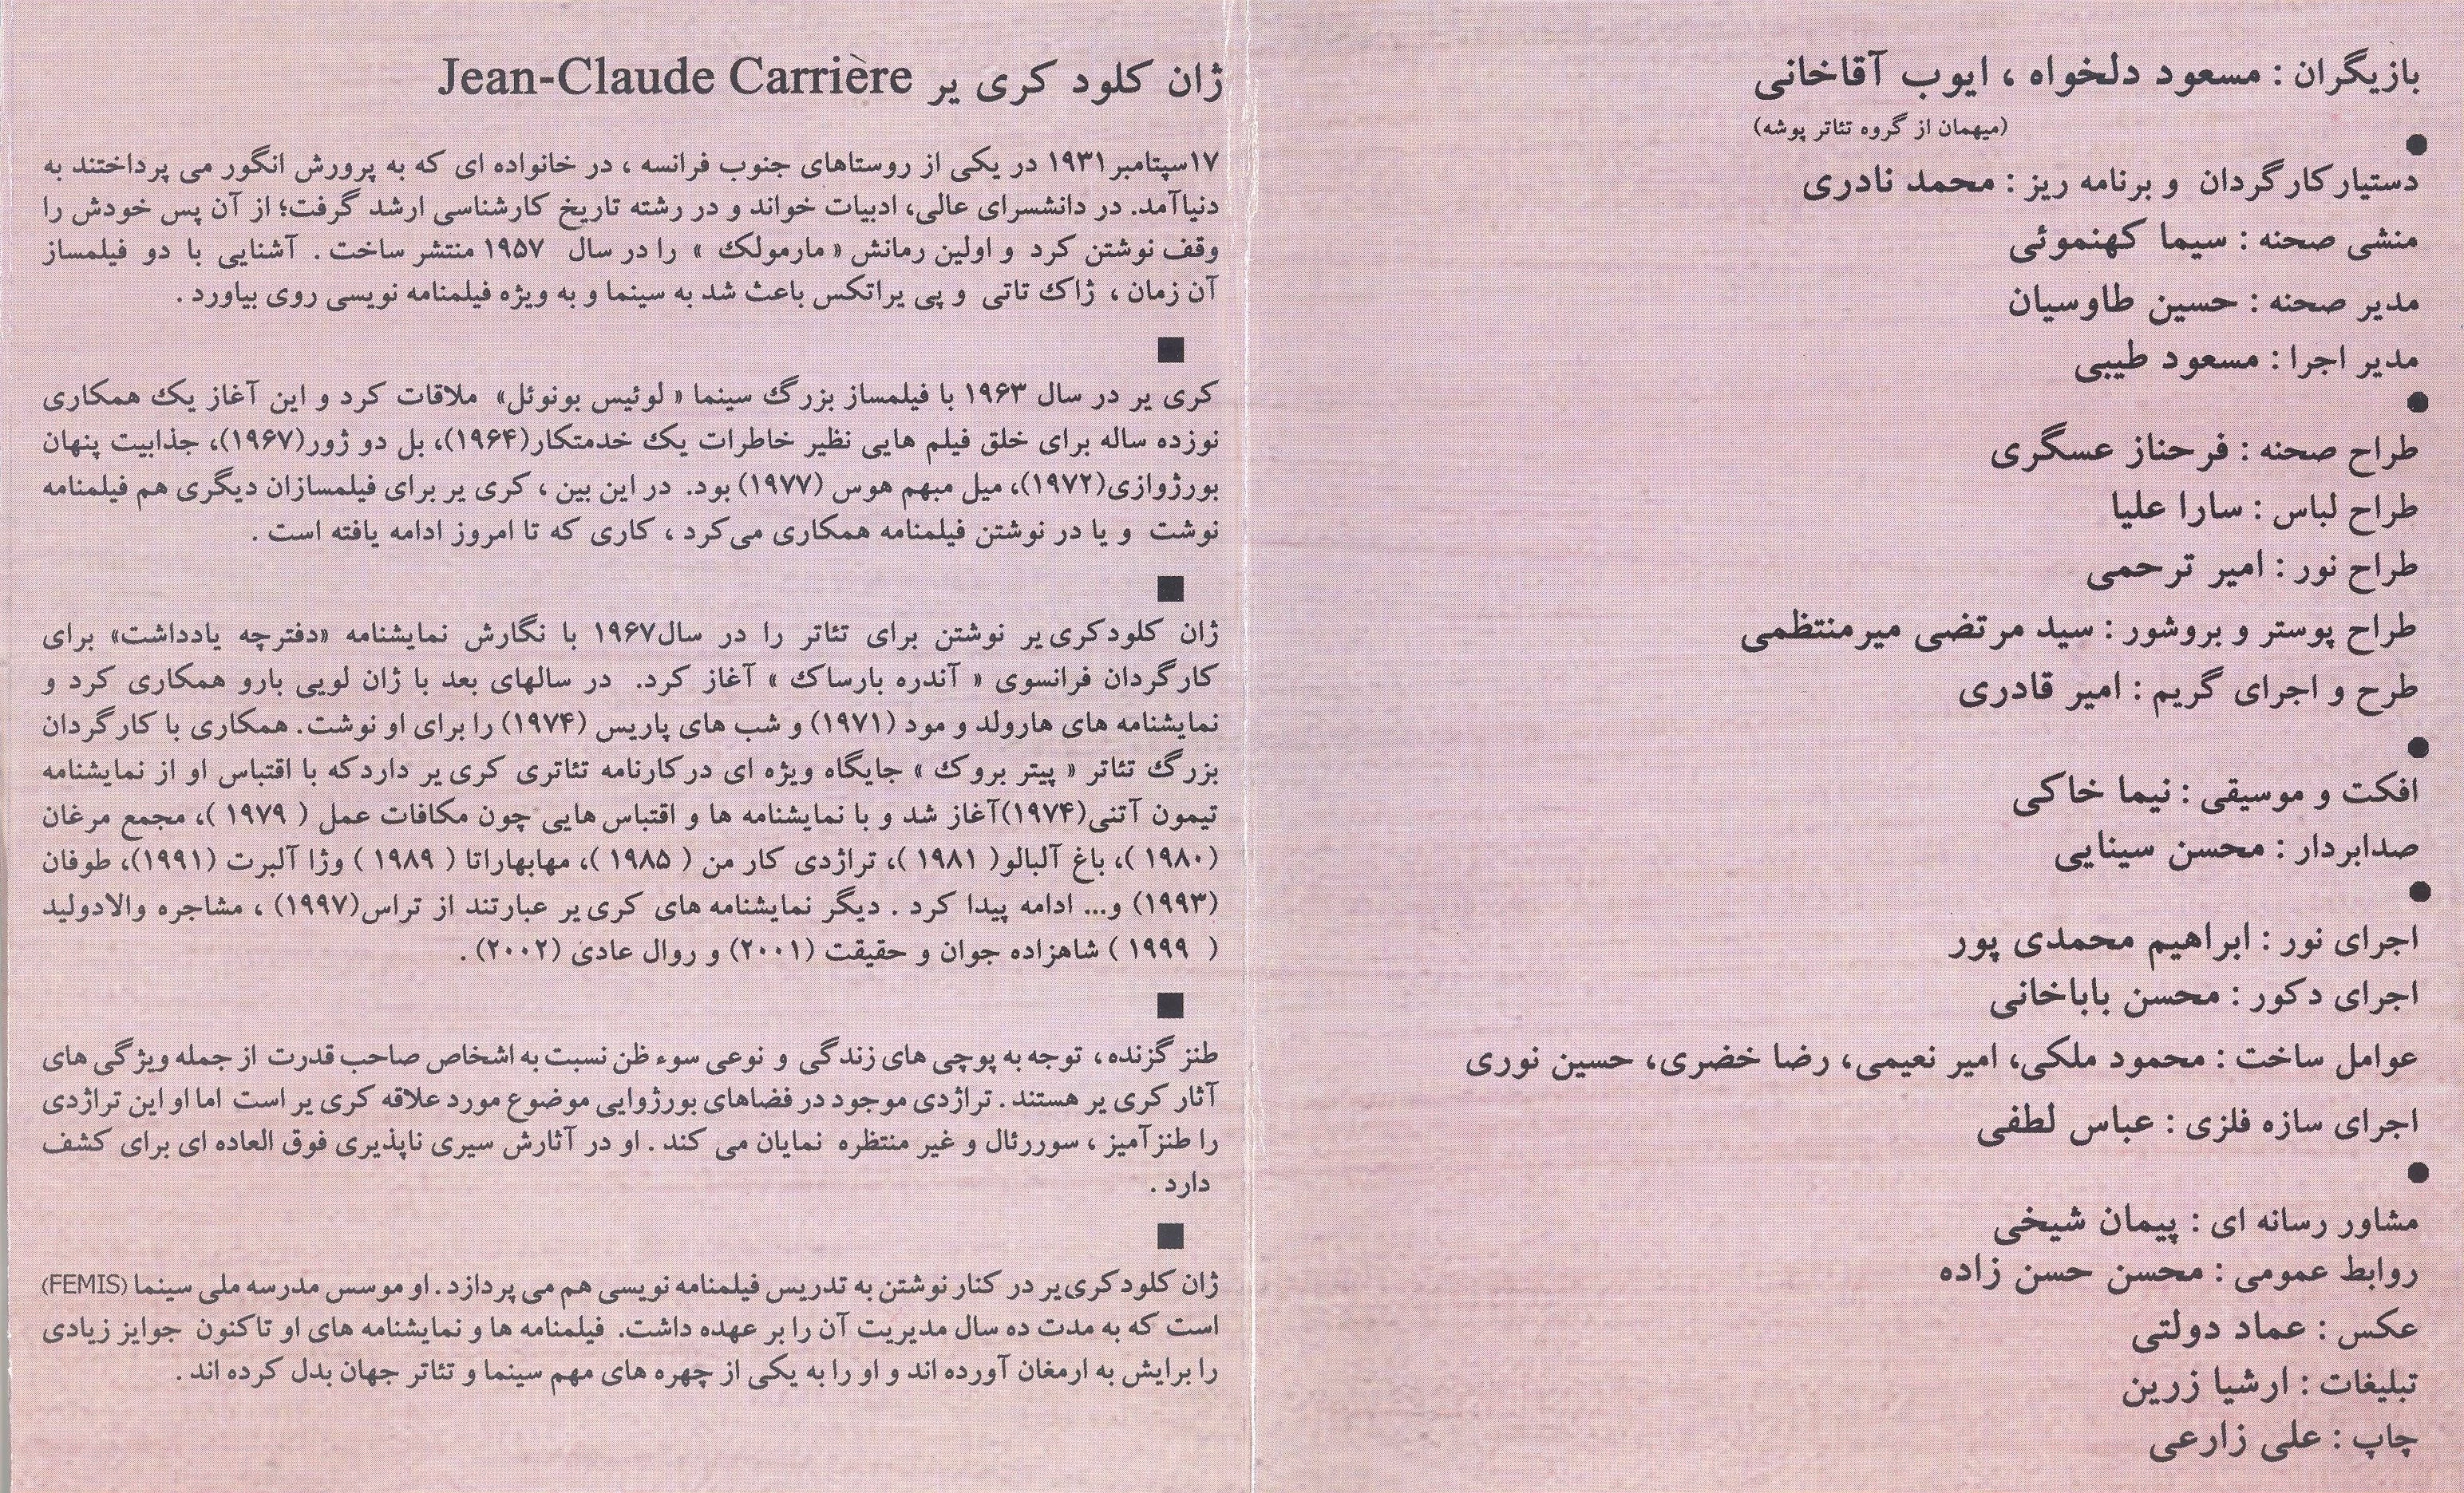 بازیگران : مسعود دلخواه ، ایوب آقاخانی
(میهمان از گروه تئاتر پوشه)
دستیار کارگردان و برنامه ریز : محمد نادری
منشی صحنه : سیما کهنموئی
مدیر صحنه : حسین طاوسیان
مدیر اجرا : مسعود طیبی
طراح صحنه : فرحناز عسگری
طراح لباس : سارا علیا
طراح نور : امیر ترحمی
طراح پوستر و بروشور : سید مرتضی میرمنتظمی
طرح و اجرای گریم : امیر قادری
افکت و موسیقی : نیما خاکی
صدابردار : محسن سینایی
اجرای نور : ابراهیم محمدی پور
اجرای دکور : محسن باباخانی
عوامل ساخت : محمود ملکی، امیر نعیمی، رضا خضری، حسین نوری
اجرای سازه فلزی : عباس لطفی
مشاور رسانه ای : پیمان شیخی
روابط عمومی : محسن حسن زاده
عکس : عماد دولتی
تبلیغات : ارشیا زرین
چاپ : علی زارعی
ژان کلود کری یر Jean-Claude Carrière
۱۷سپتامبر۱۹۳۱ در یکی از روستاهای جنوب فرانسه ، در خانواده ای که به پرورش انگور می پرداختند به
دنیاآمد. در دانشسرای عالی، ادبیات خواند و در رشته تاریخ کارشناسی ارشد گرفت؛ از آن پس خودش را
وقف نوشتن کرد و اولین رمانش « مارمولک » را در سال ۱۹۵۷ منتشر ساخت . آشنایی با دو فیلمساز
آن زمان ، ژاک تاتی و پی یراتکس باعث شد به سینما و به ویژه فیلمنامه نویسی روی بیاورد .
کری یر در سال ۱۹۶۳ با فیلمساز بزرگ سینما « لوئیس بونوئل» ملاقات کرد و این آغاز یک همکاری
نوزده ساله برای خلق فیلم هایی نظیر خاطرات یک خدمتکار(۱۹۶۴)، بل دو ژور(۱۹۶۷)، جذابیت پنهان
بورژوازی(۱۹۷۲)، میل مبهم هوس (۱۹۷۷) بود. در این بین ، کری یر برای فیلمسازان دیگری هم فیلمنامه
نوشت و یا در نوشتن فیلمنامه همکاری می‌کرد ، کاری که تا امروز ادامه یافته است .
ژان کلودکری‌یر نوشتن برای تئاتر را در سال۱۹۶۷ با نگارش نمایشنامه «دفترچه یادداشت» برای
کارگردان فرانسوی « آندره بارساک » آغاز کرد. در سالهای بعد با ژان لویی بارو همکاری کرد و
نمایشنامه های هارولد و مود (۱۹۷۱) و شب های پاریس (۱۹۷۴) را برای او نوشت. همکاری با کارگردان
بزرگ تئاتر « پیتر بروک » جایگاه ویژه ای درکارنامه تئاتری کری یر داردکه با اقتباس او از نمایشنامه
تیمون آتنی(۱۹۷۴)آغاز شد و با نمایشنامه ها و اقتباس هایی چون مکافات عمل ( ۱۹۷۹ )، مجمع مرغان
(۱۹۸۰ )، باغ آلبالو( ۱۹۸۱ )، تراژدی کار من ( ۱۹۸۵ )، مهابهاراتا ( ۱۹۸۹ ) وژا آلبرت (۱۹۹۱)، طوفان
(۱۹۹۳) و... ادامه پیدا کرد . دیگر نمایشنامه های کری‌یر عبارتند از تراس(۱۹۹۷) ، مشاجره والادولید
( ۱۹۹۹ ) شاهزاده جوان و حقیقت (۲۰۰۱) و روال عادی (۲۰۰۲) .
طنز گزنده ، توجه به پوچی های زندگی و نوعی سوء ظن نسبت به اشخاص صاحب قدرت از جمله ویژگی های
آثار کری یر هستند . تراژدی موجود در فضاهای بورژوایی موضوع مورد علاقه کری یر است اما او این تراژدی
را طنزآمیز ، سوررئال و غیر منتظره نمایان می کند . او در آثارش سیری ناپذیری فوق العاده ای برای کشف
دارد .
ژان کلودکری‌یر در کنار نوشتن به تدریس فیلمنامه نویسی هم می پردازد . او موسس مدرسه ملی سینما (FEMIS)
است که به مدت ده سال مدیریت آن را بر عهده داشت. فیلمنامه ها و نمایشنامه های او تاکنون جوایز زیادی
را برایش به ارمغان آورده اند و او را به یکی از چهره های مهم سینما و تئاتر جهان بدل کرده اند .